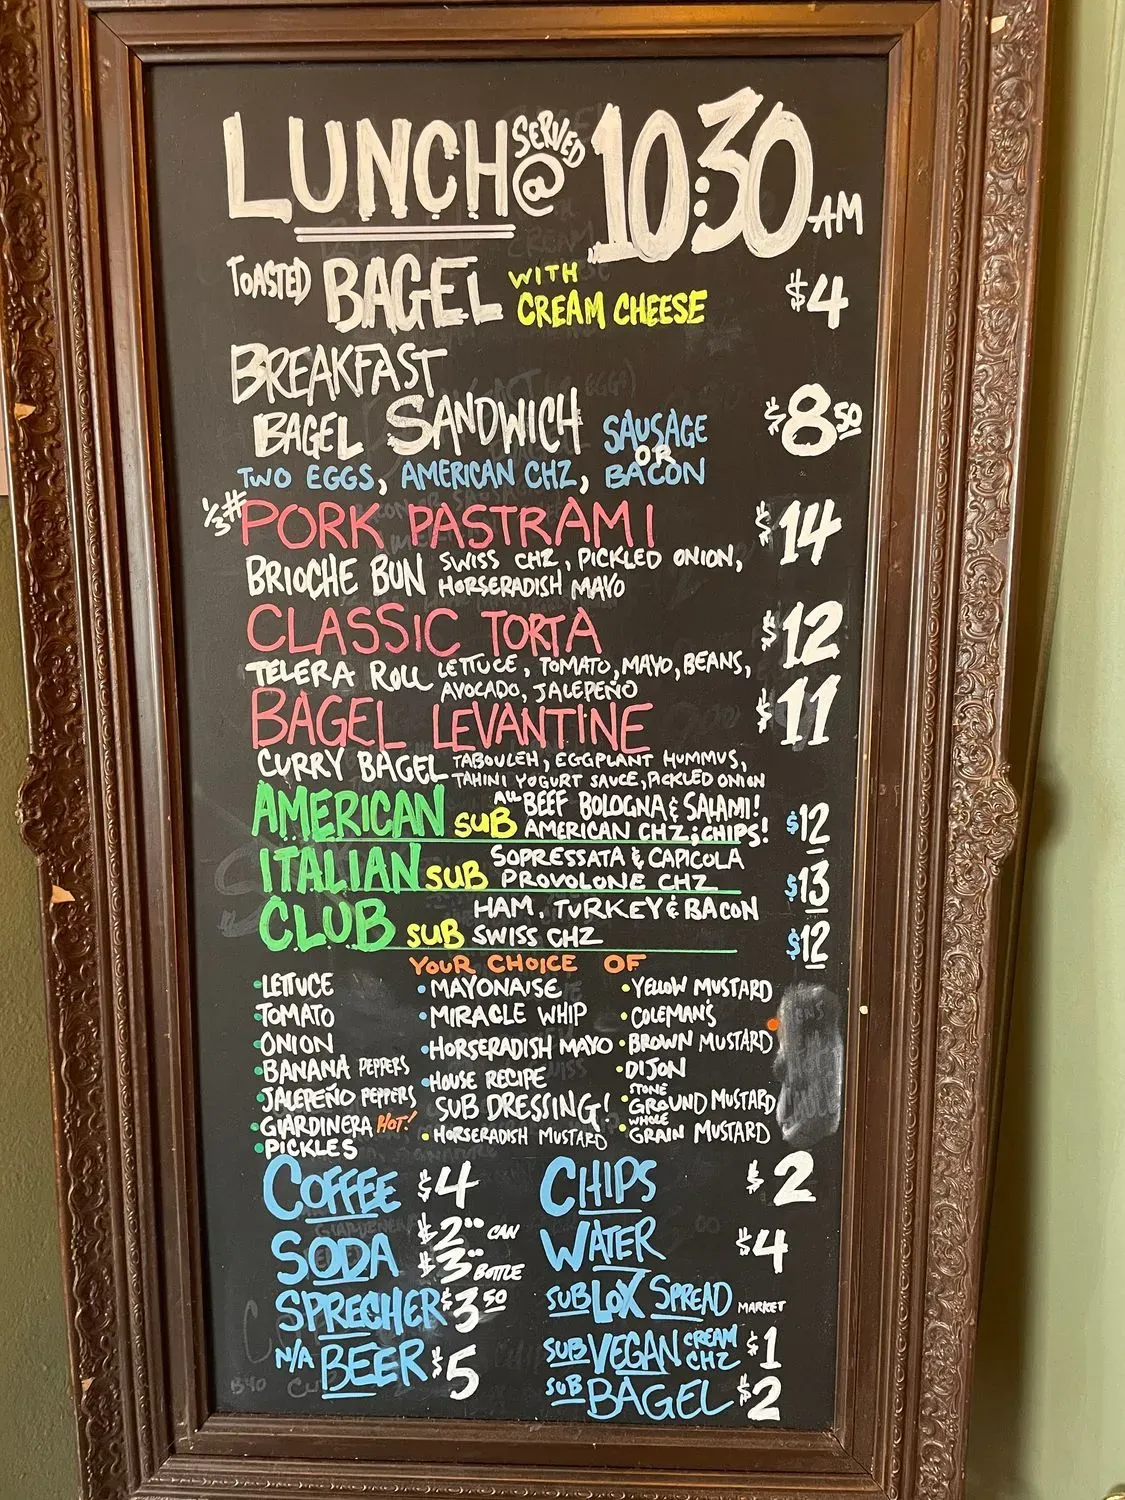 LUNCH SERVED @ 10:30 AM
TOASTED BAGEL WITH CREAM CHEESE $4
BREAKFAST
BAGEL SANDWICH SAUSAGE OR BACON $8.50
TWO EGGS, AMERICAN CHZ,
1/3# PORK PASTRAMI $14
BRIOCHE BUN SWISS CHZ, PICKLED ONION,
HORSERADISH MAYO
CLASSIC TORTA $12
TELERA ROLL LETTUCE, TOMATO, MAYO, BEANS,
AVOCADO, JALEPEÑO
BAGEL LEVANTINE $11
CURRY BAGEL TABOULEH, EGGPLANT HUMMUS,
TAHINI YOGURT SAUCE, PICKLED ONION
AMERICAN SUB ALL BEEF BOLOGNA & SALAMI! $12
AMERICAN CHZ; CHIPS!
ITALIAN SUB SOPRESSATA & CAPICOLA $13
PROVOLONE CHZ
CLUB SUB HAM, TURKEY & BACON $12
SWISS CHZ
YOUR CHOICE OF
•LETTUCE
•TOMATO
•ONION
•BANANA PEPPERS
•JALEPEÑO PEPPERS
•GIARDINERA HOT!
•PICKLES
•MAYONAISE
•MIRACLE WHIP
•HORSERADISH MAYO
•HOUSE RECIPE
SUB DRESSING!
•HORSERADISH MUSTARD
•YELLOW MUSTARD
•COLEMAN'S
•BROWN MUSTARD
•DIJON
•STONE GROUND MUSTARD
•WHOLE GRAIN MUSTARD
COFFEE $4
SODA $2.00 CAN
$3.00 BOTTLE
SPRECHER $3.50
N/A BEER $5
CHIPS $2
WATER $4
SUB LOX SPREAD MARKET
SUB VEGAN CREAM CHZ $1
SUB BAGEL $2